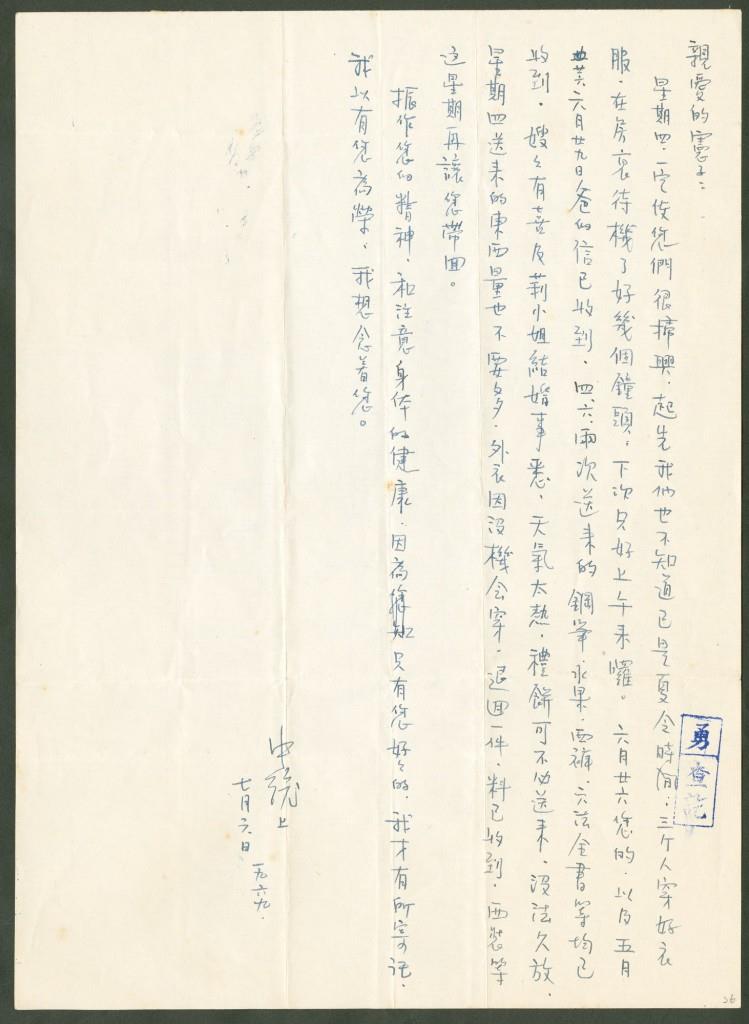 親愛的憲子：
星期四一定使您們很掃興．起先我們也不知道已是夏令時間；三个人穿好衣
服．在房裏待機了好幾個鐘頭。下次只好上午來囉。六月廿六您的．以及五月
六月廿九日爸的信已收到．四、六、兩次送來的鋼筆．水果．西褲．六法全書等均已
收到．嫂々有喜及莉小姐結婚事悉．天氣太熱．禮餅可不必送來．沒法久放．
星期四送來的東西量也不要多．外衣因沒機会穿．退回一件．料已收到．西裝等
这星期再讓您帶回。
振作您的精神．和注意身体的健康．因為 只有您好々的．我才有所寄讬．
我以有您為榮．我想念着您。
中統上
七月六日 一九六九．
勇
查訖
26